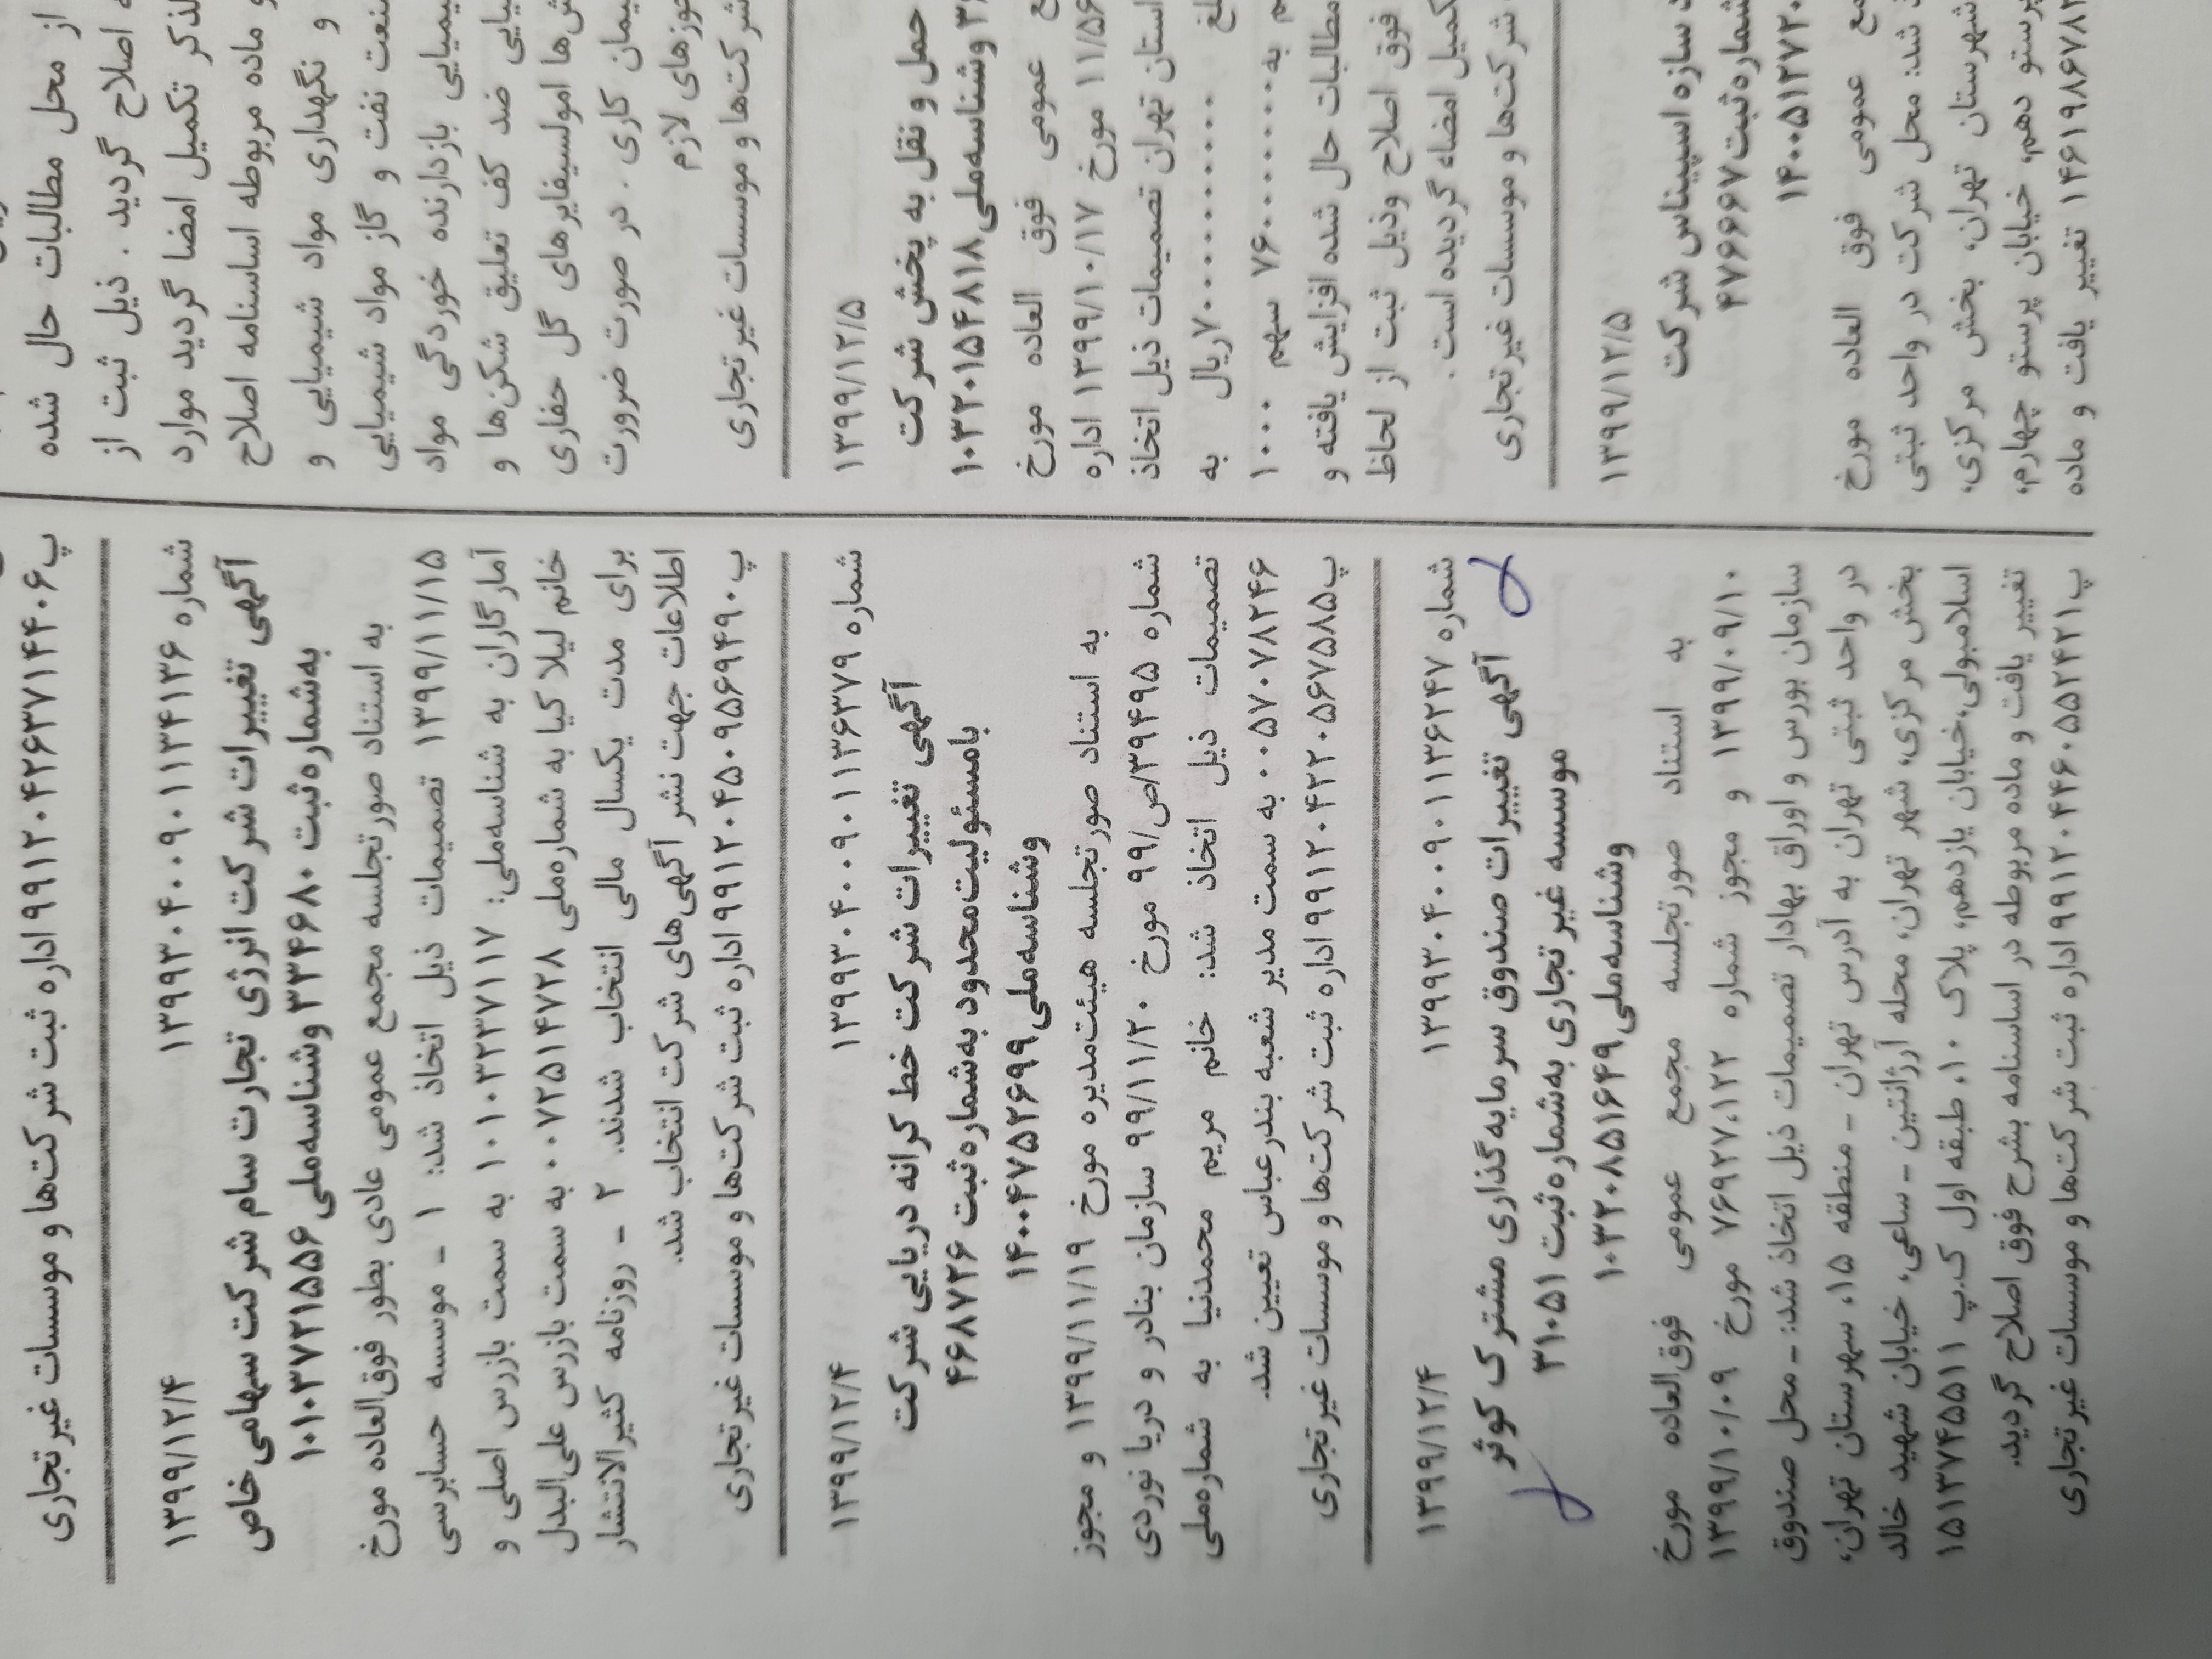 از محل مطالبات حال شده
اصلاح گردید . ذیل ثبت از
تکمیل امضا گردید موارد
و ماده مربوطه اساسنامه اصلاح
و نگهداری مواد شیمیایی و
نفت و گاز مواد شیمیایی
بازدارنده خوردگی مواد
ضد کف تعلیق شکن‌ها و
امولسیفایرهای گل حفاری
کاری . در صورت ضرورت
لازم
شرکت‌ها و موسسات غیرتجاری
۱۳۹۹/۱۲/۵
حمل و نقل به پخش شرکت
وشناسه‌ملی ۱۰۳۲۰۱۵۴۸۱۸
عمومی فوق العاده مورخ
۱۱/۵۶ مورخ ۱۳۹۹/۱۰/۱۷ اداره
استان تهران تصمیمات ذیل اتخاذ
ریال به
سهم ۱۰۰۰
مطالبات حال شده افزایش یافته و
فوق اصلاح وذیل ثبت از لحاظ
تکمیل امضاء گردیده است .
شرکت‌ها و موسسات غیرتجاری
۱۳۹۹/۱۲/۵
سازه اسپیناس شرکت
شماره ثبت ۴۷۶۶۶۷
۱۴۰۰۵۱۲۷۲۰
عمومی فوق العاده مورخ
شد: محل شرکت در واحد ثبتی
شهرستان تهران، بخش مرکزی،
پرستو دهم، خیابان پرستو چهارم،
۱۴۶۱۹۸۶۷۸۲ تغییر یافت و ماده
پ۹۹۱۲۰۴۲۶۳۷۱۴۴۰۶ اداره ثبت شرکت‌ها و موسسات غیرتجاری
شماره ۱۳۹۹۳۰۴۰۰۹۰۱۱۳۴۱۳۶ ۱۳۹۹/۱۲/۴
آگهی تغییرات شرکت انرژی تجارت سام شرکت سهامی خاص
به‌شماره ثبت ۳۳۴۶۸۰ وشناسه‌ملی ۱۰۱۰۳۷۲۱۵۵۶
به استناد صورتجلسه مجمع عمومی عادی بطور فوق‌العاده مورخ
۱۳۹۹/۱۱/۱۵ تصمیمات ذیل اتخاذ شد: ۱ - موسسه حسابرسی
آمارگاران به شناسه‌ملی: ۱۰۱۰۳۲۳۷۱۱۷ به سمت بازرس اصلی و
خانم لیلا کیا به شماره‌ملی ۰۰۷۲۵۱۴۷۲۸ به سمت بازرس علی‌البدل
برای مدت یکسال مالی انتخاب شدند. ۲ - روزنامه کثیرالانتشار
اطلاعات جهت نشر آگهی‌های شرکت انتخاب شد.
پ۹۹۱۲۰۴۵۰۹۵۶۹۴۹۰ اداره ثبت شرکت‌ها و موسسات غیرتجاری
شماره ۱۳۹۹۳۰۴۰۰۹۰۱۱۳۶۳۷۹ ۱۳۹۹/۱۲/۴
آگهی تغییرات شرکت خط کرانه دریایی شرکت
بامسئولیت‌محدود به‌شماره ثبت ۴۶۸۷۲۶
وشناسه‌ملی ۱۴۰۰۴۷۵۲۶۹۹
به استناد صورتجلسه هیئت‌مدیره مورخ ۱۳۹۹/۱۱/۱۹ و مجوز
شماره ۳۹۴۹۵/ص/۹۹ مورخ ۹۹/۱۱/۲۰ سازمان بنادر و دریا نوردی
تصمیمات ذیل اتخاذ شد: خانم مریم محمدنیا به شماره‌ملی
۰۰۵۷۰۷۸۲۴۶ به سمت مدیر شعبه بندرعباس تعیین شد.
پ۹۹۱۲۰۴۲۲۰۵۶۷۵۸۵ اداره ثبت شرکت‌ها و موسسات غیرتجاری
شماره ۱۳۹۹۳۰۴۰۰۹۰۱۱۳۶۲۴۷ ۱۳۹۹/۱۲/۴
آگهی تغییرات صندوق سرمایه‌گذاری مشترک کوثر
موسسه غیر تجاری به‌شماره ثبت ۳۱۰۵۱
وشناسه‌ملی ۱۰۳۲۰۸۵۱۶۴۹
به استناد صورتجلسه مجمع عمومی فوق‌العاده مورخ
۱۳۹۹/۰۹/۱۰ و مجوز شماره ۷۶۹۲۷،۱۲۲ مورخ ۱۳۹۹/۱۰/۰۹
سازمان بورس و اوراق بهادار تصمیمات ذیل اتخاذ شد: - محل صندوق
در واحد ثبتی تهران به آدرس تهران - منطقه ۱۵، شهرستان تهران،
بخش مرکزی، شهر تهران، محله آرژانتین - ساعی، خیابان شهید خالد
اسلامبولی، خیابان یازدهم، پلاک ۱۰، طبقه اول ک.پ ۱۵۱۳۷۴۵۵۱۱
تغییر یافت و ماده مربوطه در اساسنامه بشرح فوق اصلاح گردید.
پ۹۹۱۲۰۴۴۶۰۵۵۲۴۲۱ اداره ثبت شرکت‌ها و موسسات غیرتجاری